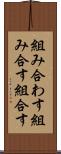 組み合わす組
み合す組合す